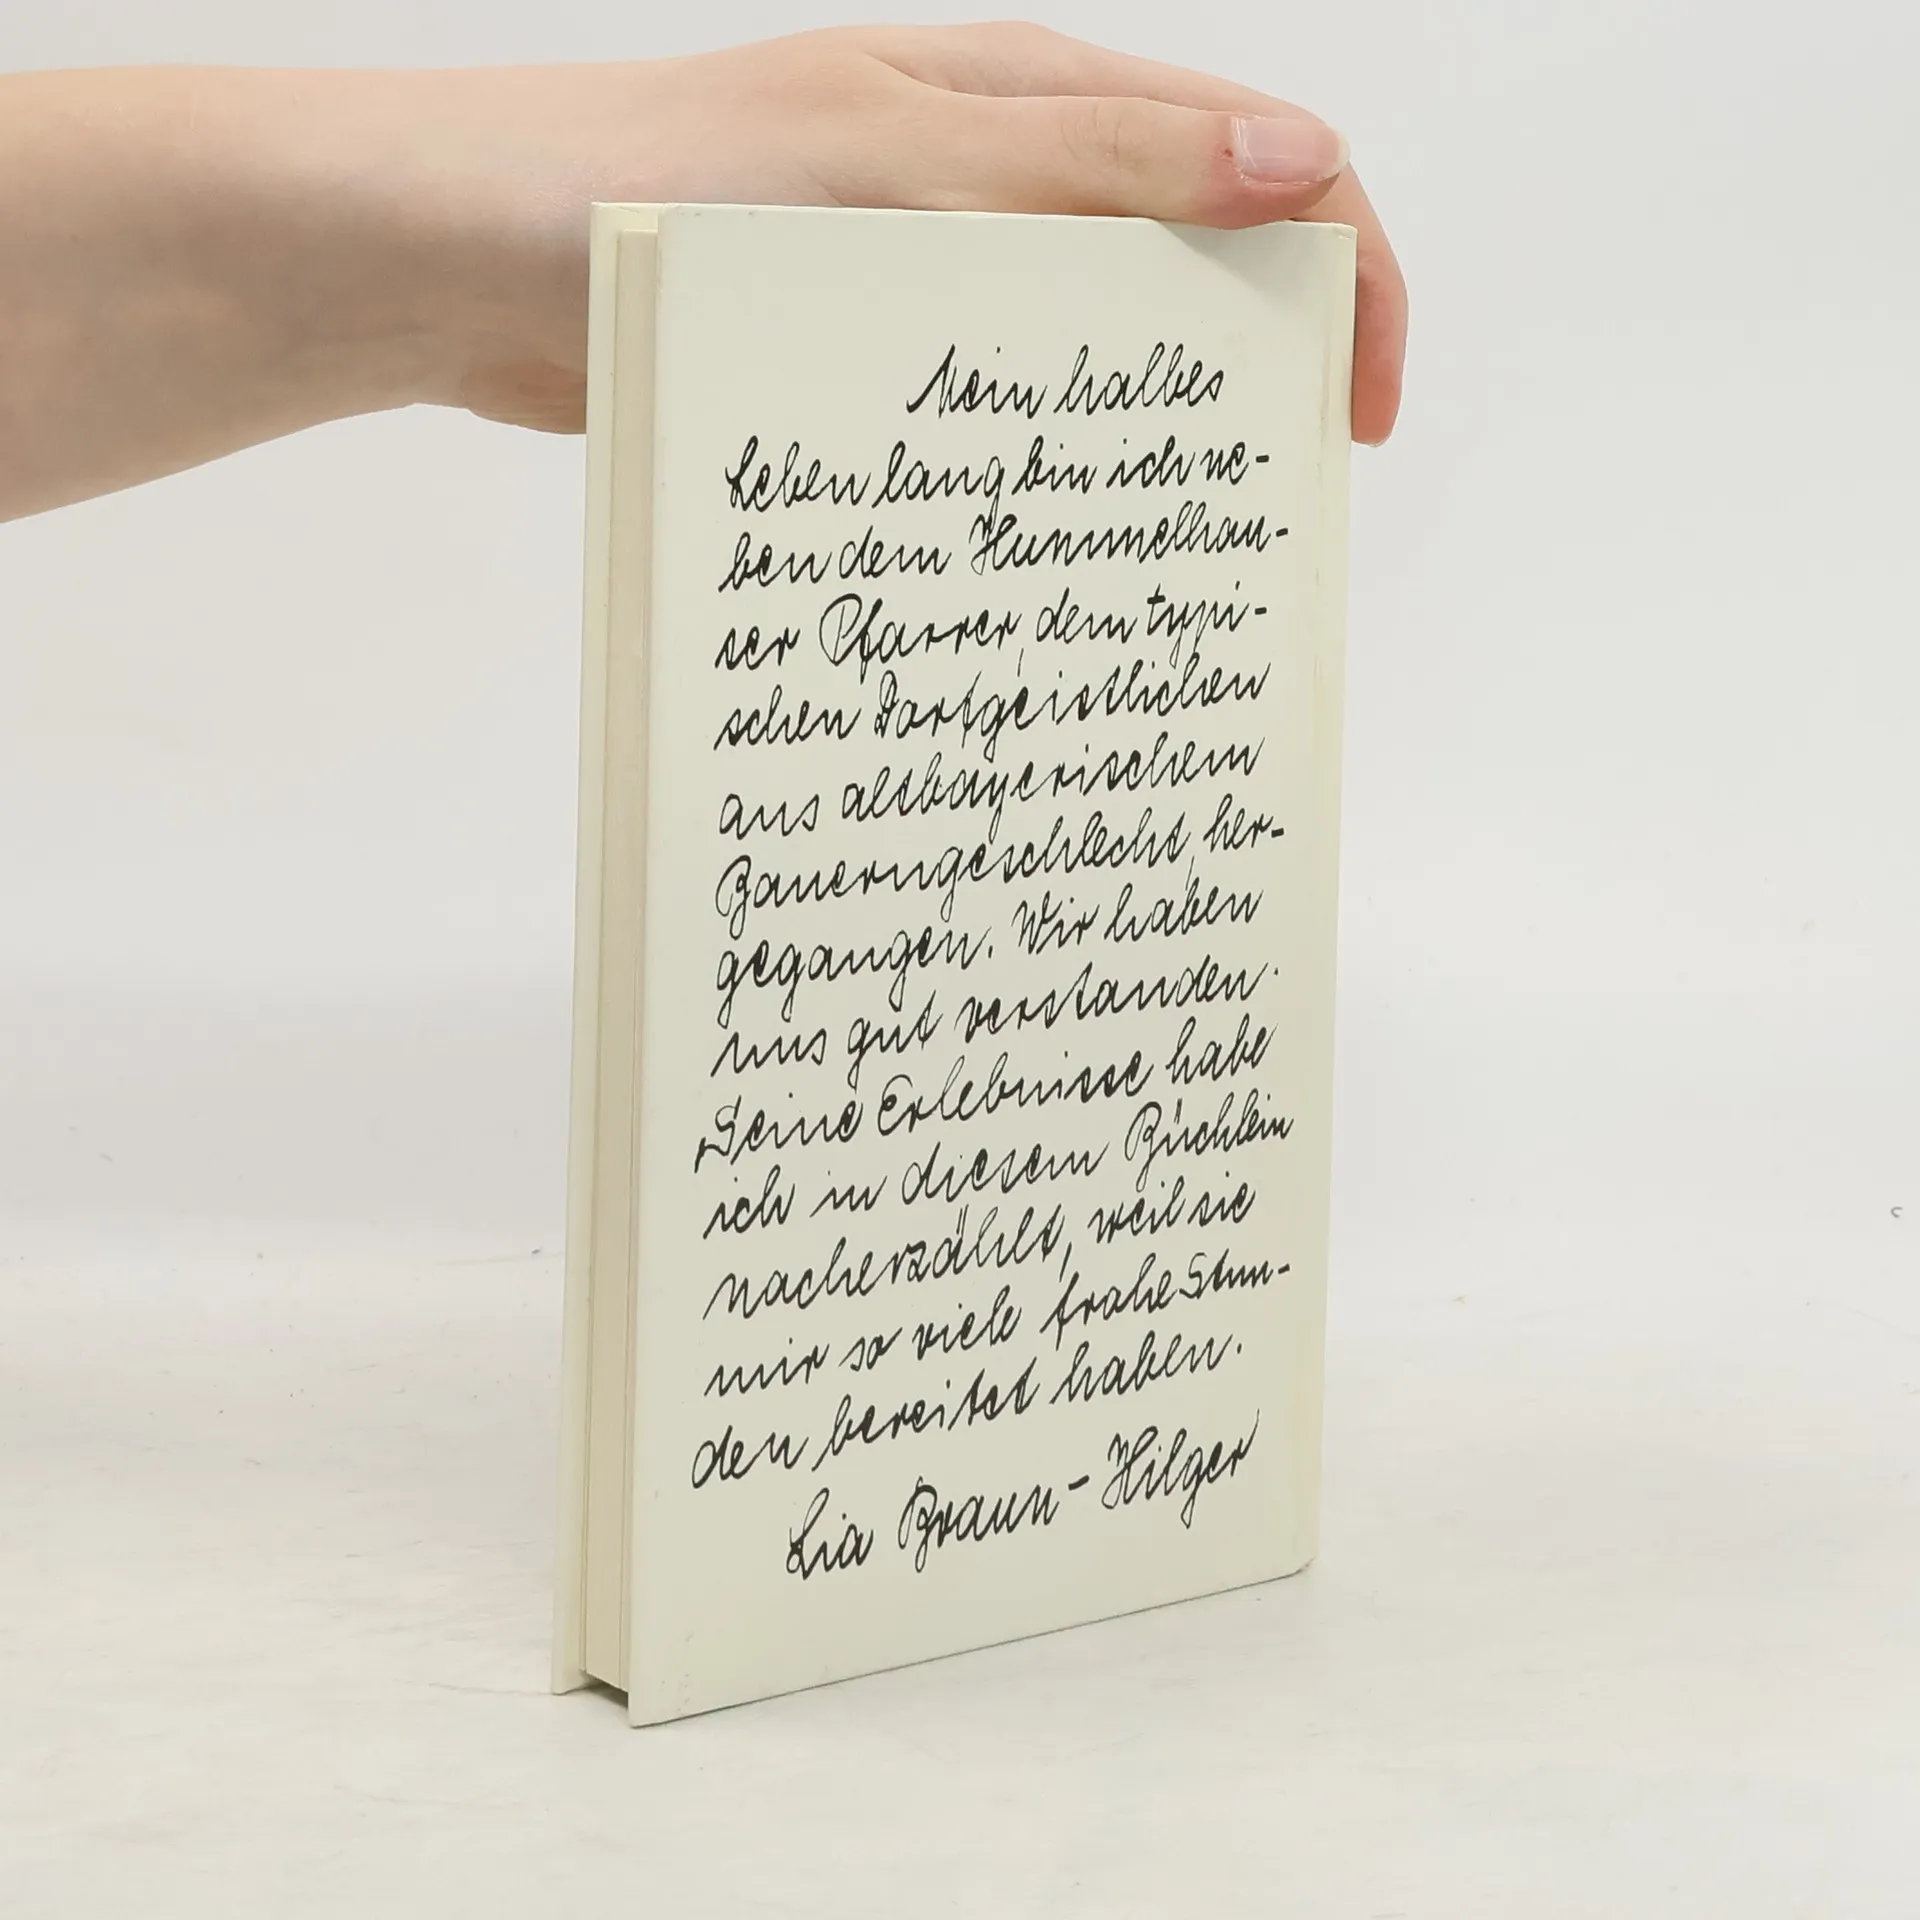 Mein halbes
Leben lang bin ich ne-
ben dem Hummelhau-
ser Pfarrer, dem typi-
schen Dorfgeistlichen
aus altbayerischem
Bauerngeschlecht, her-
gegangen. Wir haben
uns gut verstanden.
Seine Erlebnisse habe
ich in diesem Büchlein
nacherzählt, weil sie
mir so viele frohe Stun-
den bereitet haben.
Lia Braun-Hilger